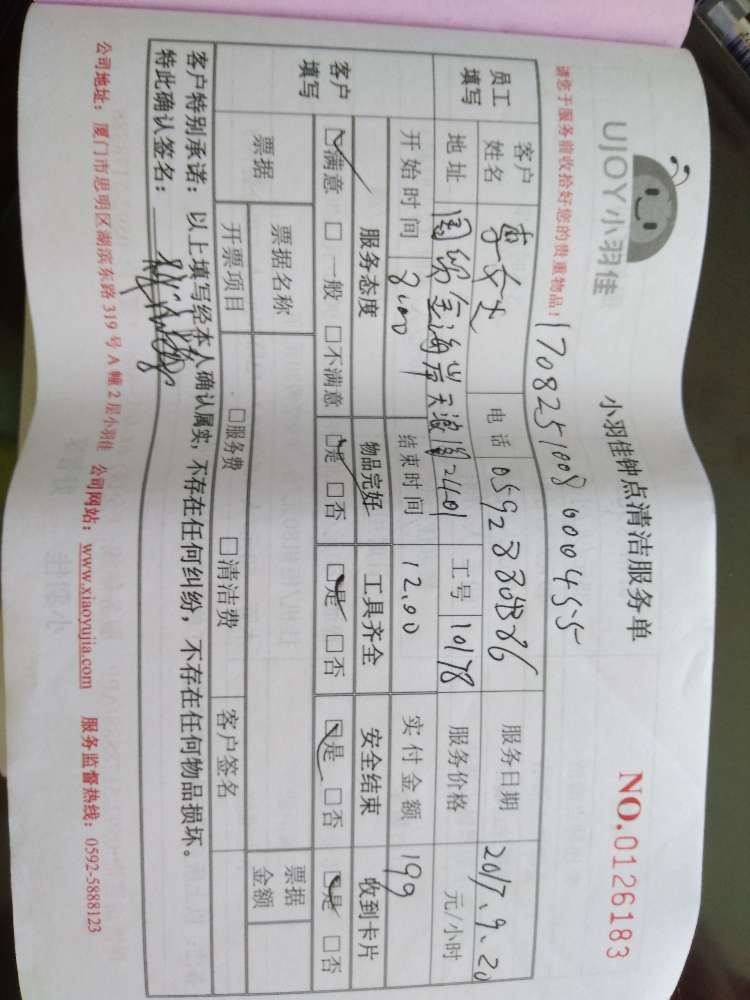 UJOY小羽佳
小羽佳钟点清洁服务单
NO.0126183
请您于服务前收拾好您的贵重物品！
1708251008000455
员工填写 客户姓名 李女士 电话 服务日期 2017.9.20
地址 国贸金海岸天 2401 工号 10178 服务价格 元/小时
开始时间 8:00 结束时间 12.00 实付金额 199
客户填写 服务态度 物品完好 工具齐全 安全结束 收到卡片
☑满意 □一般 □不满意 ☑是 □否 ☑是 □否 ☑是 □否 ☑是 □否
票据 票据名称 票据金额
开票项目 □服务费 □清洁费 客户签名
客户特别承诺：以上填写经本人确认属实，不存在任何纠纷，不存在任何物品损坏。
特此确认签名：
公司地址：厦门市思明区湖滨东路 319 号 A 幢 2 层小羽佳 公司网站：www.xiaoyujia.com 服务监督热线：0592-5888123